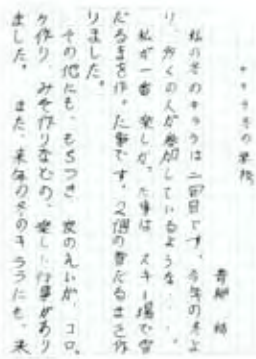 キララ冬の思い出
青柳 結
私の冬のキララは二回目です。今年の冬よ
り、多くの人が参加しているような…。
私が一番楽しかった事は、スキー場で雪
だるまを作った事です。2個の雪だるまを作
りました。
その他にも、もちつき、夜の えいが、コロ
ッケ作り、みそ作りなどの、楽しい行事があり
ました。また、来年の冬のキララにも、来